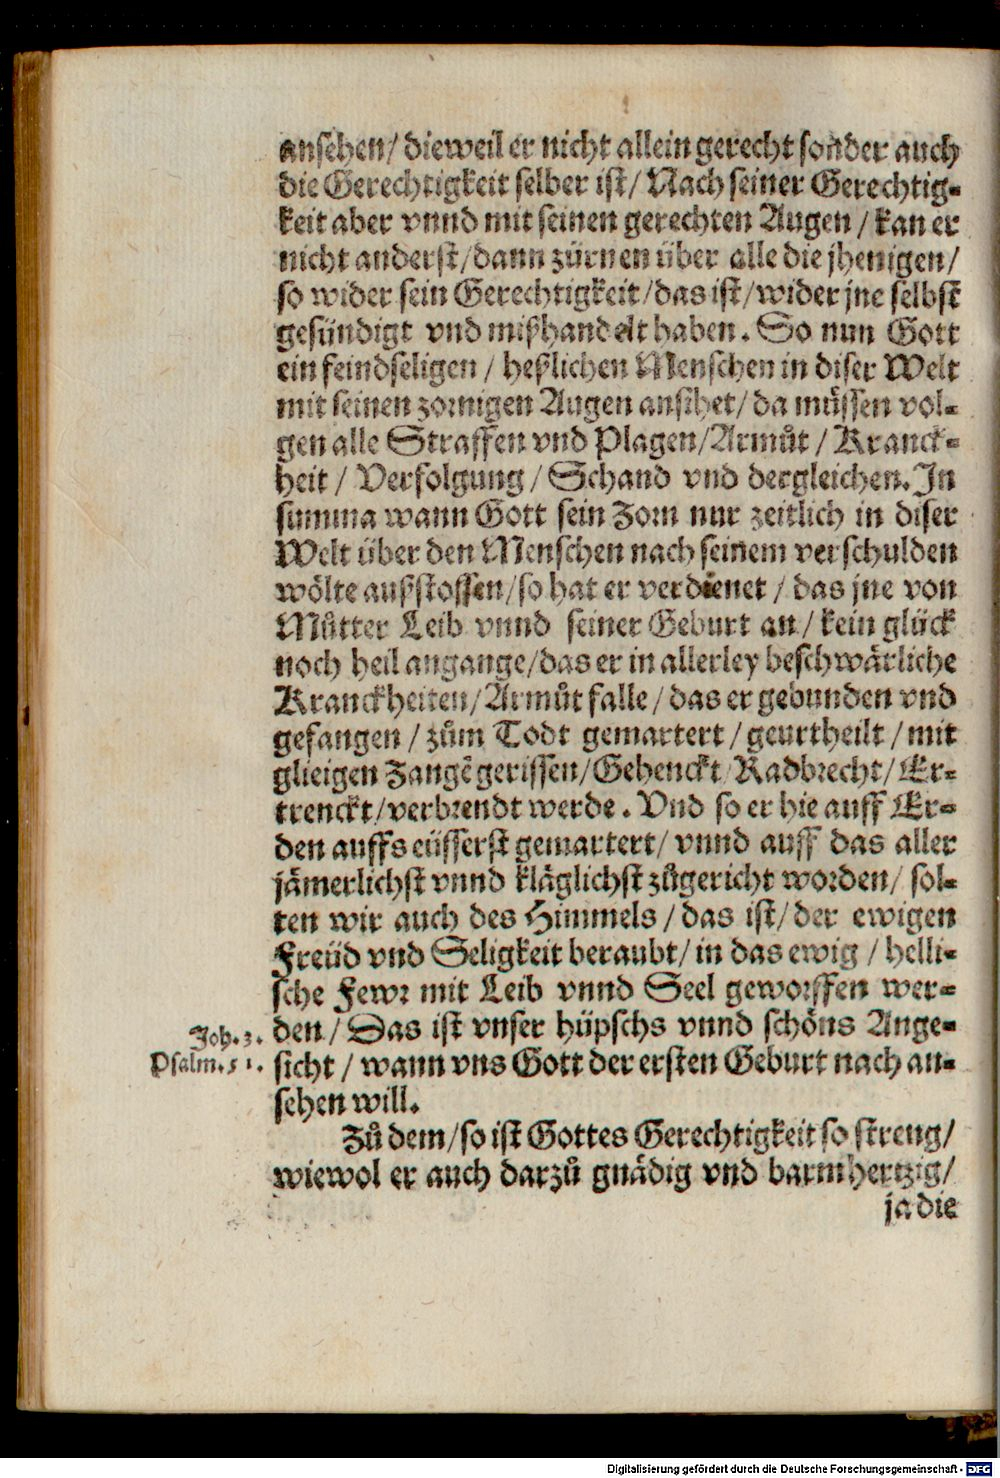 ansehen/ dieweil er nicht allein gerecht sonder auch
die Gerechtigkeit selber ist/ Nach seiner Gerechtig-
keit aber vnnd mit seinen gerechten Augen / kan er
nicht anderst/dann zürnen über alle die jhenigen/
so wider sein Gerechtigkeit/das ist/wider jne selbst
gesündigt vnd mißhandelt haben. So nun Gott
ein feindseligen / heßlichen Menschen in diser Welt
mit seinen zornigen Augen ansihet/ da müssen vol-
gen alle Straffen vnd Plagen/Armůt / Kranck-
heit / Verfolgung / Schand vnd dergleichen. In
summa wann Gott sein Zorn nur zeitlich in diser
Welt über den Menschen nach seinem verschulden
wölte außstossen/so hat er verdienet / das jne von
Můtter Leib vnnd seiner Geburt an/ kein glück
noch heil angange/das er in allerley beschwärliche
Kranckheiten/Armůt falle/das er gebunden vnd
gefangen / zům Todt gemartert/geurtheilt/mit
glieigen Zangẽ gerissen/Gehenckt/Radbrecht/Er-
trenckt/verbrendt werde. Vnd so er hie auff Er-
den auffs eüsserst gemartert/ vnnd auff das aller
jämerlichst vnnd kläglichst zůgericht worden/ sol-
ten wir auch des Himmels /das ist/der ewigen
Freüd vnd Seligkeit beraubt/in das ewig / helli-
sche Fewr mit Leib vnnd Seel geworffen wer-
Joh. 3. den / Das ist vnser hüpschs vnnd schöns Ange-
Psalm. 51. sicht / wann vns Gott der ersten Geburt nach an-
sehen will.
Zů dem/so ist Gottes Gerechtigkeit so streng/
wiewol er auch darzů gnädig vnd barmhertzig/
ja die
Digitalisierung gefördert durch die Deutsche Forschungsgemeinschaft - DFG